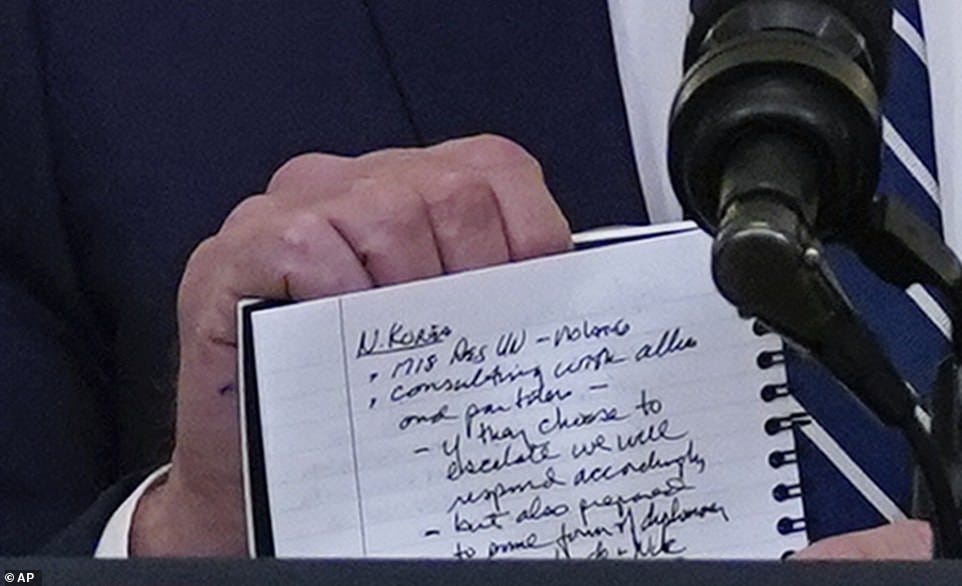 N. KOREA
• MIS RES UN - VIOLATE
• consulting with allies
and partners -
- if they choose to
escalate we will
respond accordingly
- but also prepared
to some form of diplomacy
© AP